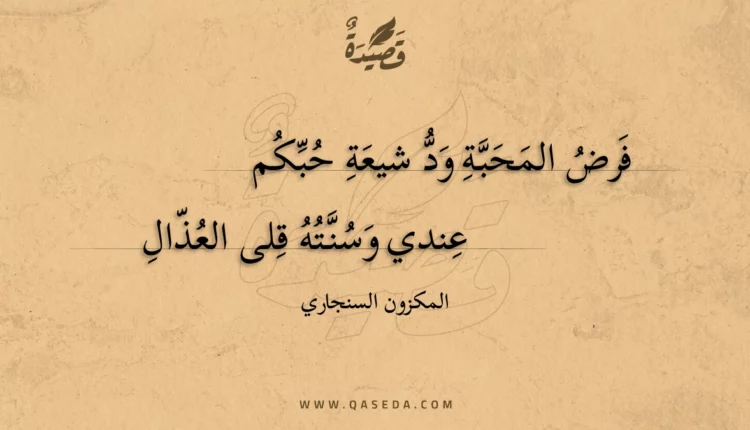 قَصِيدَةٌ
فَرضُ المَحَبَّةِ وَدُّ شيعَةِ حُبِّكُم
عِندي وَسُنَّتُهُ قِلى العُذّالِ
المكزون السنجاري
WWW.QASEDA.COM